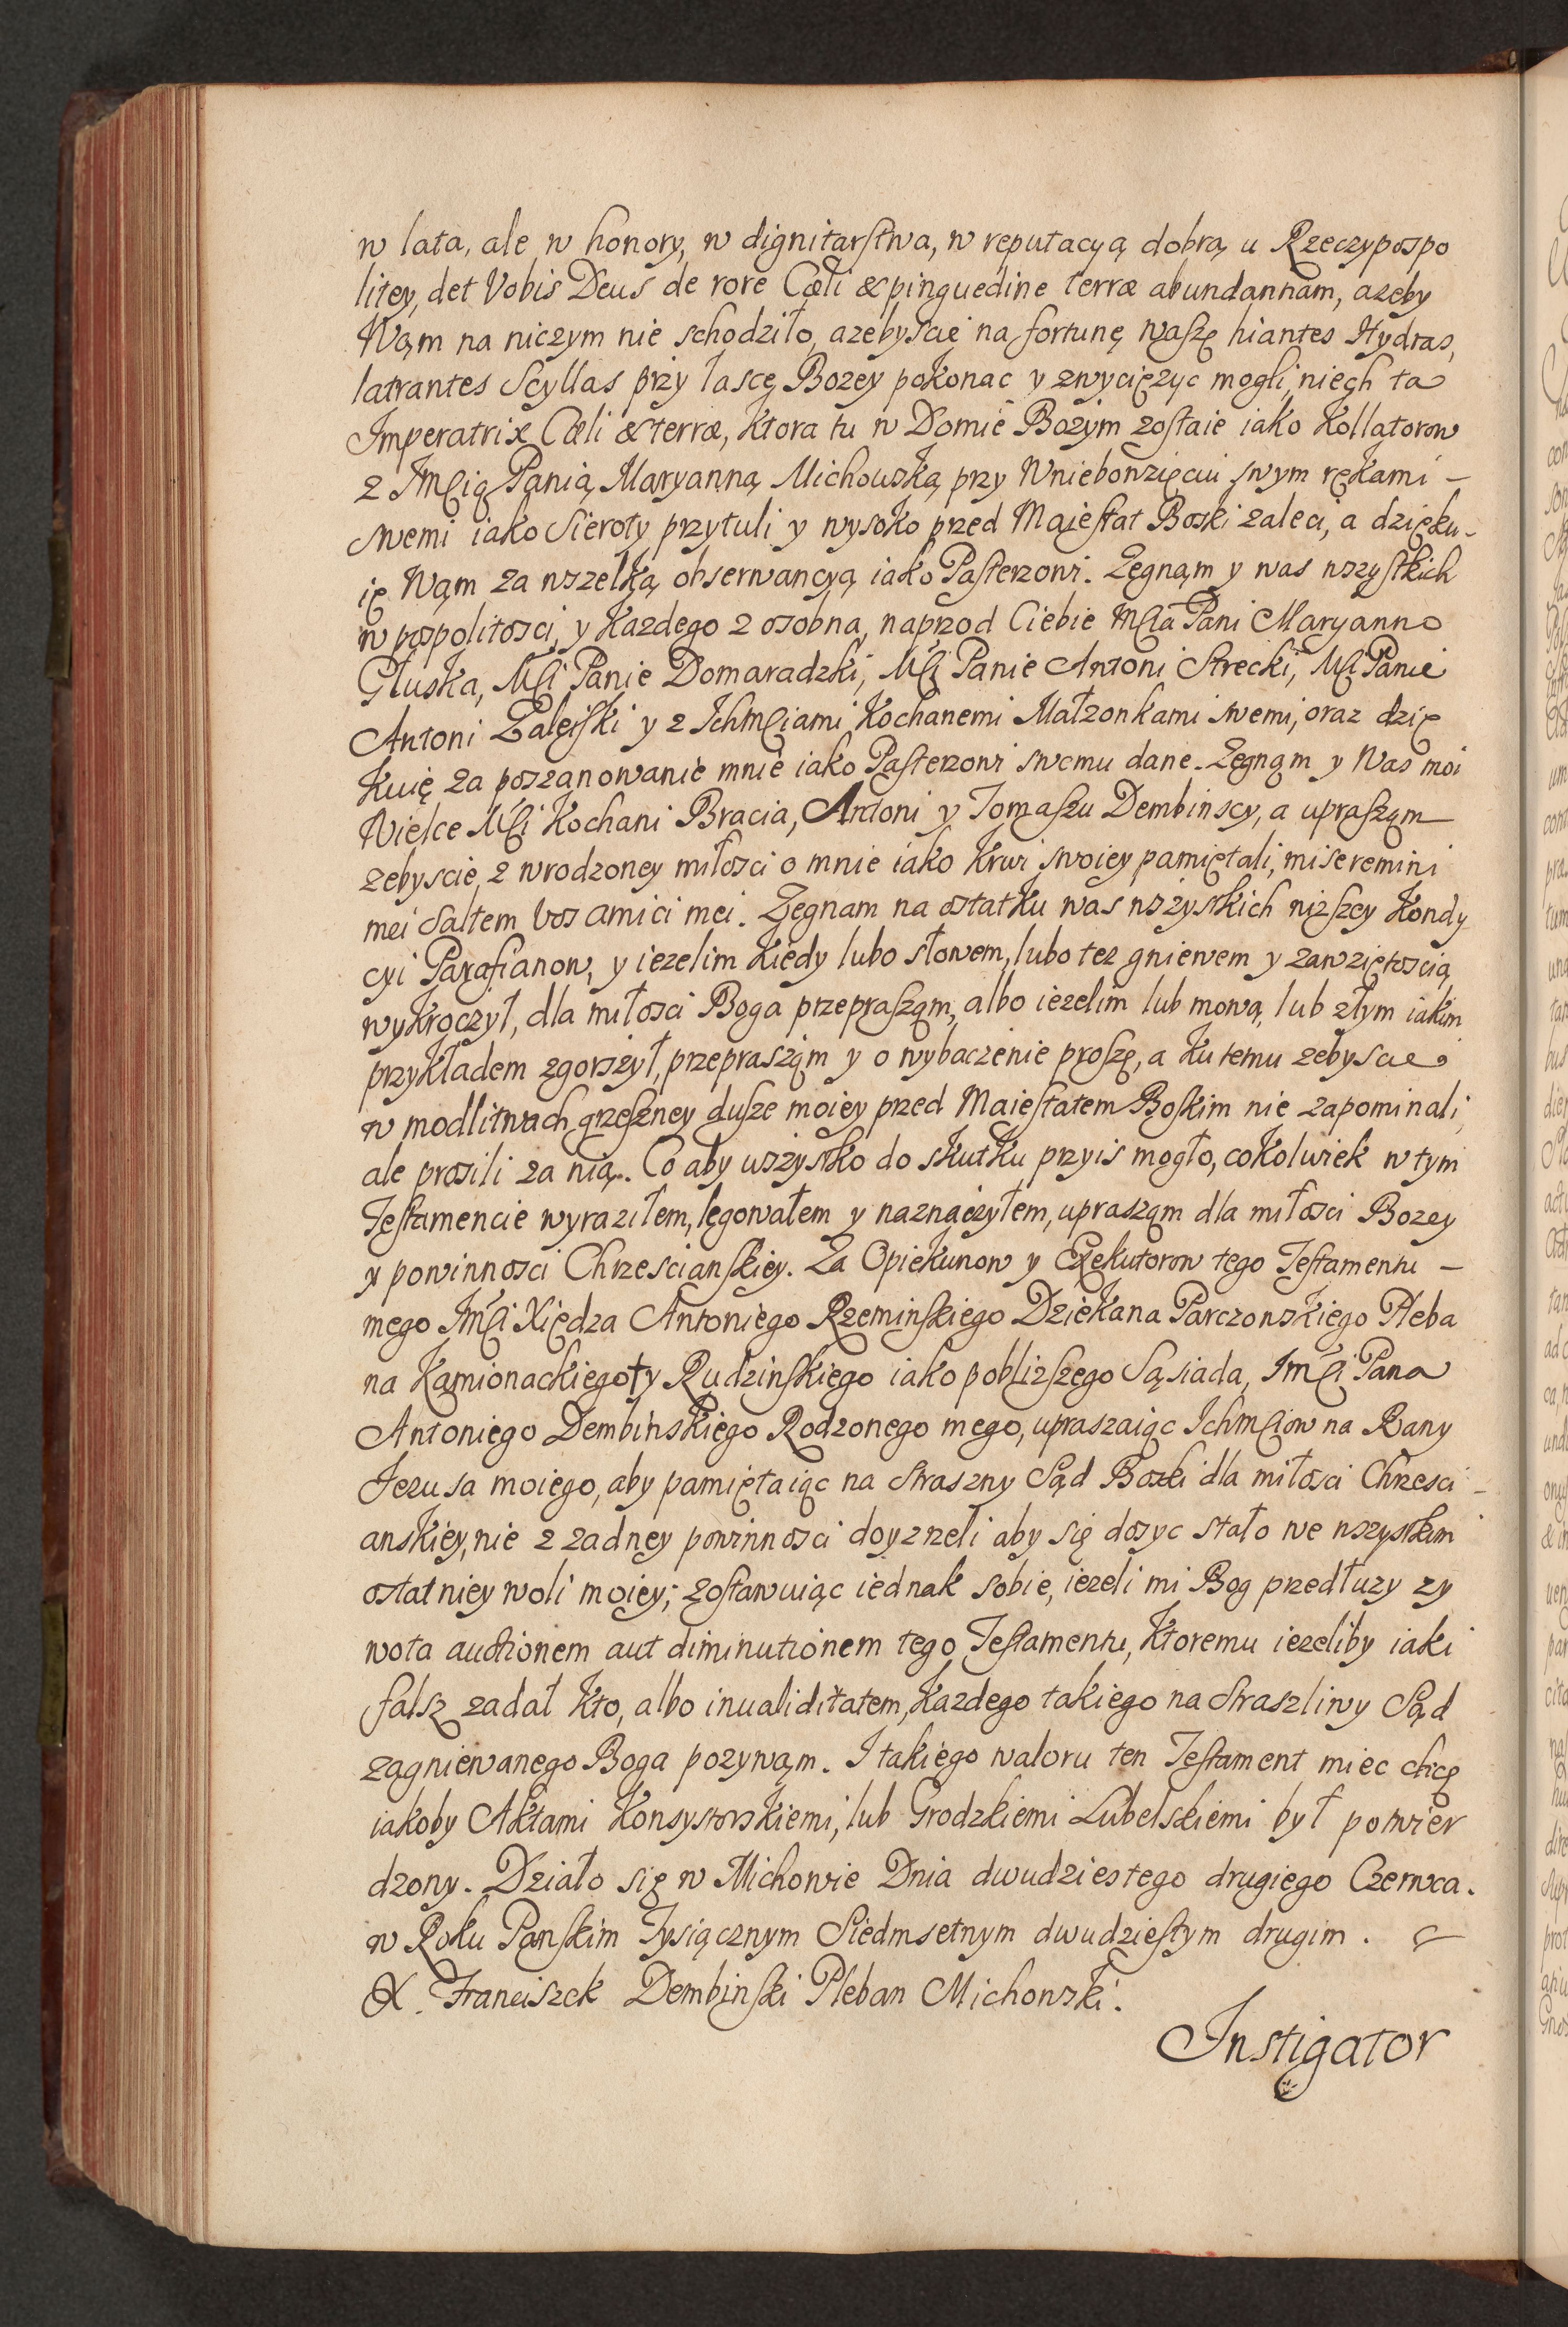 w lata, ale w honory, w dignitarstwa, w reputacyą dobrą u Rzeczypospo
litey, det Vobis Deus de rore Cæli & pinguedine terræ abundantiam, azeby
Wąm na niczym nie schodziło, azebyscie na fortunę waszę hiantes Hydras,
latrantes Scyllas przy łascę Bozey pokonac y zwycięzyc mogli, niech ta
Imperatrix Cæli & terræ, ktora tu w Domie Bozym zostaie iako Kollątorow
z Jmścią Panią Maryanną Michowską przy Wniebowzięciu swym rękami –
swemi iako Sieroty przytuli y wysoko przed Maiestat Boski zaleci, a dzięku-
ię Wąm za wszelką obserwancyą iako Pasterzowi. Zęgnąm y was wszystkich
w pospolitosci, y kazdego z osobna, naprzod Ciebie Mścia Pani Maryanno
Głuska, Mści Panie Domaradzki, Mści Panie Antoni Strecki, Mści Panie
Antoni Zaleiski y z Ichmściami Kochanemi Małzonkami swemi, oraz dzię
kuię za poszanowanie mnie iako Pasterzowi swemu dane. Zęgnąm y Was moi
Wielce Mści Kochani Bracia, Antoni y Tomaszu Dembinscy, a uprasząm
zebyscie z wrodzoney miłosci o mnie iako krwi swoiey pamiętali, miseremini
mei saltem vos amici mei. Zęgnam na ostatku was wszystkich niższey Kondy
cyi Parafianow, y iezelim kiedy lubo słowem, lubo tez gniewem y zawziętoscią
wykroczył, dla miłosci Boga przeprasząm, albo iezelim lub mową, lub złym iakim
przykładem zgorszył, przeprasząm y o wybaczenie proszę, a ku temu zebyscie
w modlitwach grzeszney dusze moiey przed Maiestatem Boskim nie zapominali,
ale prosili za nią. Co aby wszystko do skutku przyis mogło, cokolwiek w tym
Testamencie wyraziłem, lęgowałem y naznaczyłem, uprasząm dla miłosci Bozey
y powinnosci Chrzescianskiey. Za Opiekunow y Exekutorow tego Testamentu –
mego Jmści Xiędza Antoniego Rzeminskiego Dziekana Parczowskiego Pleba
na Kamionackiego y Rudzinskiego iako poblizszego Sąsiada, Jmści Pana
Antoniego Dembinskiego Rodzonego mego, upraszaiąc Ichmściow na Rany
Jezusa moiego, aby pamiętaiąc na straszny Sąd Boski dla miłosci Chrzesci –
anskiey, nie z zadney powinnosci doyzrzeli aby się dosyc stało we wszystkim
ostatniey woli moiey; zostawuiąc iednak sobie, iezeli mi Bog przedłuzy zy
wota auctionem aut diminutionem tego Testamentu, ktoremu iezeliby iaki
falsz zadał kto, albo inualiditatem, kazdego takiego na straszliwy Sąd
zagniewanego Boga pozywąm. I takiego waloru ten Testament miec chcę
iakoby Aktami Konsystorskiemi, lub Grodzkiemi Lubelskiemi był potwier
dzony. Działo się w Michowie Dnia dwudziestego drugiego Czerwca.
w Roku Panskim Tysiącznym Siedmsetnym dwudziestym drugim.
X. Franciszek Dembinski Pleban Michowski.
Instigator